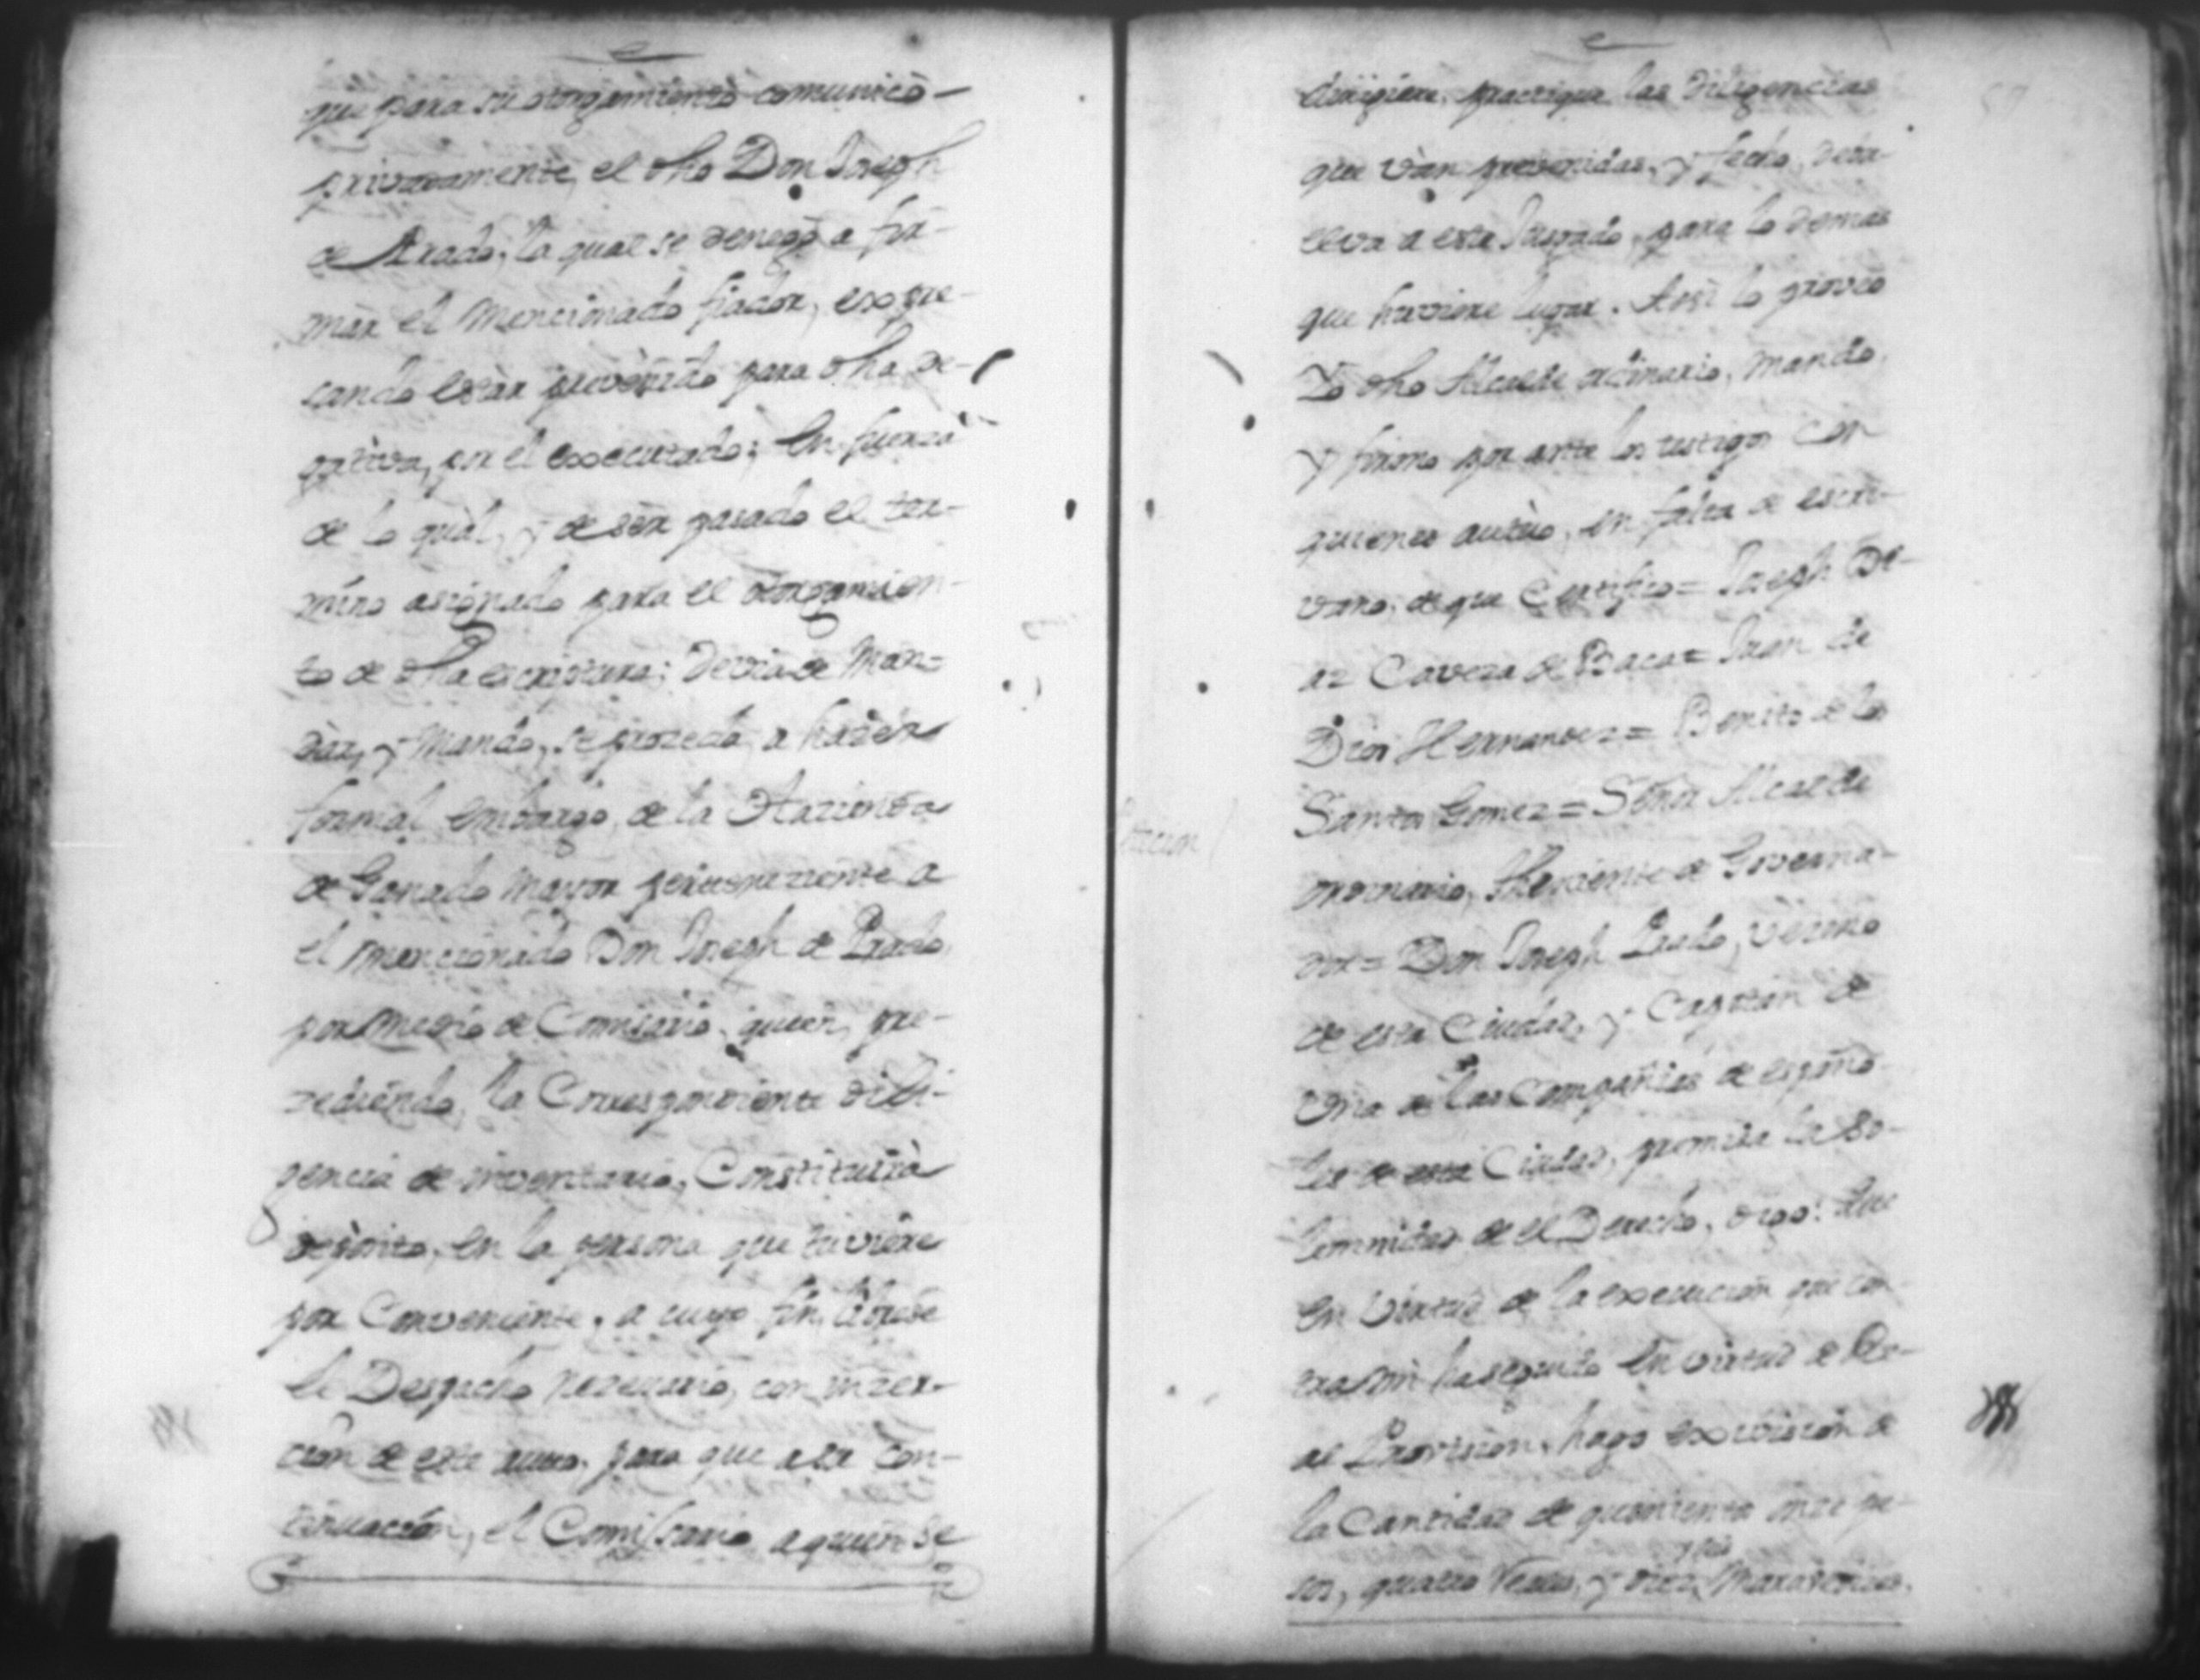 que para su otorgamiento comunicò
privadamente, el dho Don Joseph
de Prado; la qual se denegò a fir-
mar el Mencionado fiador, expre-
sando estàr prevenido para dha ne-
gativa, por el executado; En fuerza
de lo qual, y de sèr pasado el ter-
mino asignado para el otorgamien-
to de dha escriptura: Devia de Man-
dàr, y Mando, se proceda, a hazèr
formal embargo, de la Hazienda
de Ganado Mayor perteneziente a
el mencionado Don Joseph de Prado,
por Medio de Comisario, quien, pre-
cediendo, la Correspondiente dili-
gencia de inventario, Constituirà
depòsito, en la persona que tuviere
por Conveniente, a cuyo fin, librese
el Despacho nezesario, con inzer-
ciòn de este auto, para que a su con-
tinuaciòn, el Comissario a quien se
dirigiere, practique las diligencias
que vàn prevenidas, y fecho, debu-
elva a este Jusgado, para lo demas
que huviere lugar. Assi lo proveò
Yo dho Alcalde ordinario, Mandò,
y firmo por ante los testigos con
quienes actùo, en falta de escri-
vano, de que Certifico = Joseph Di-
az Caveza de Baca = Juan de
Dios Hernandez = Benito de los
Santos Gomez = Señor Alcalde
ordinario, Theniente de Governa-
dor = Don Joseph Prado, vecino
de esta Ciudad, y Capitàn de
Una de las Compañias de españo-
les de esta Ciudad, premisa la so-
lemnidad de el Derecho, digo: Que
en Virtud de la execuciòn que con-
tra mi ha seguido en virtud de Re-
al Provision, hago exivición de
la Cantidad de quinientos onze pe-
sos, quatro Reales, y diez Maravedises.